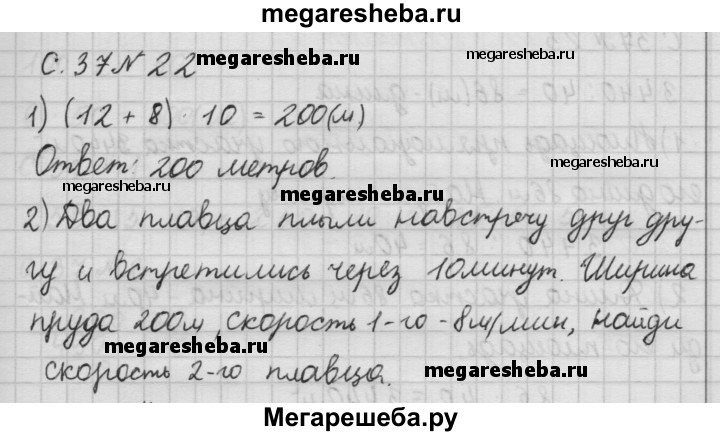 megaresheba.ru
С. 37 № 22
megaresheba.ru
megaresheba.ru
1) (12 + 8) · 10 = 200(м)
Ответ: 200 метров.
megaresheba.ru
megaresheba.ru
2) Два плавца плыли навстречу друг дру-
гу и встретились через 10 минут. Ширина
пруда 200м, скорость 1-го - 8м/мин, найди
megaresheba.ru
скорость 2-го плавца.
megaresheba.ru
Мегарешеба.ру